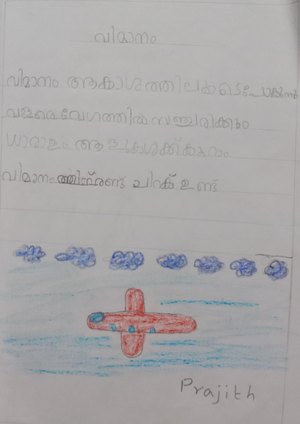 വിമാനം
വിമാനം ആകാശത്തിലൂടെ പോകുന്നു
വളരെ വേഗത്തിൽ സഞ്ചരിക്കും
ധാരാളം
വിമാനത്തിന് രണ്ട് ചിറക് ഉണ്ട്
Prajith